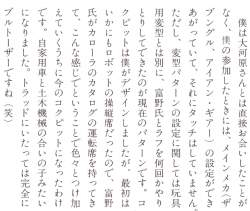 僕は大河原さんとは直接お会いしたことが
なく、僕の参加したときには、メインメカ〈ザ
ブングル、アイアン・ギアー〉の設定ができ
あがっていて、それにタッチはしていません。
ただし、変型パターンの設定に関しては玩具
用変型とは別に、富野氏とラフを何回かやり
とりしてできたのが現在のパターンです。コ
クピットは僕がデザインしましたが、最初は
いかにもロボットの操縦席だったので、富野
氏がカローラのカタログの運転席を持ってき
て、こんな感じでということで色々とつけ加
えていくうちに今のコクピットになったわけ
です。自家用車と土木機械の合いの子みたい
になりました。トラッドにいたっては完全に
ブルトーザーですね（笑）